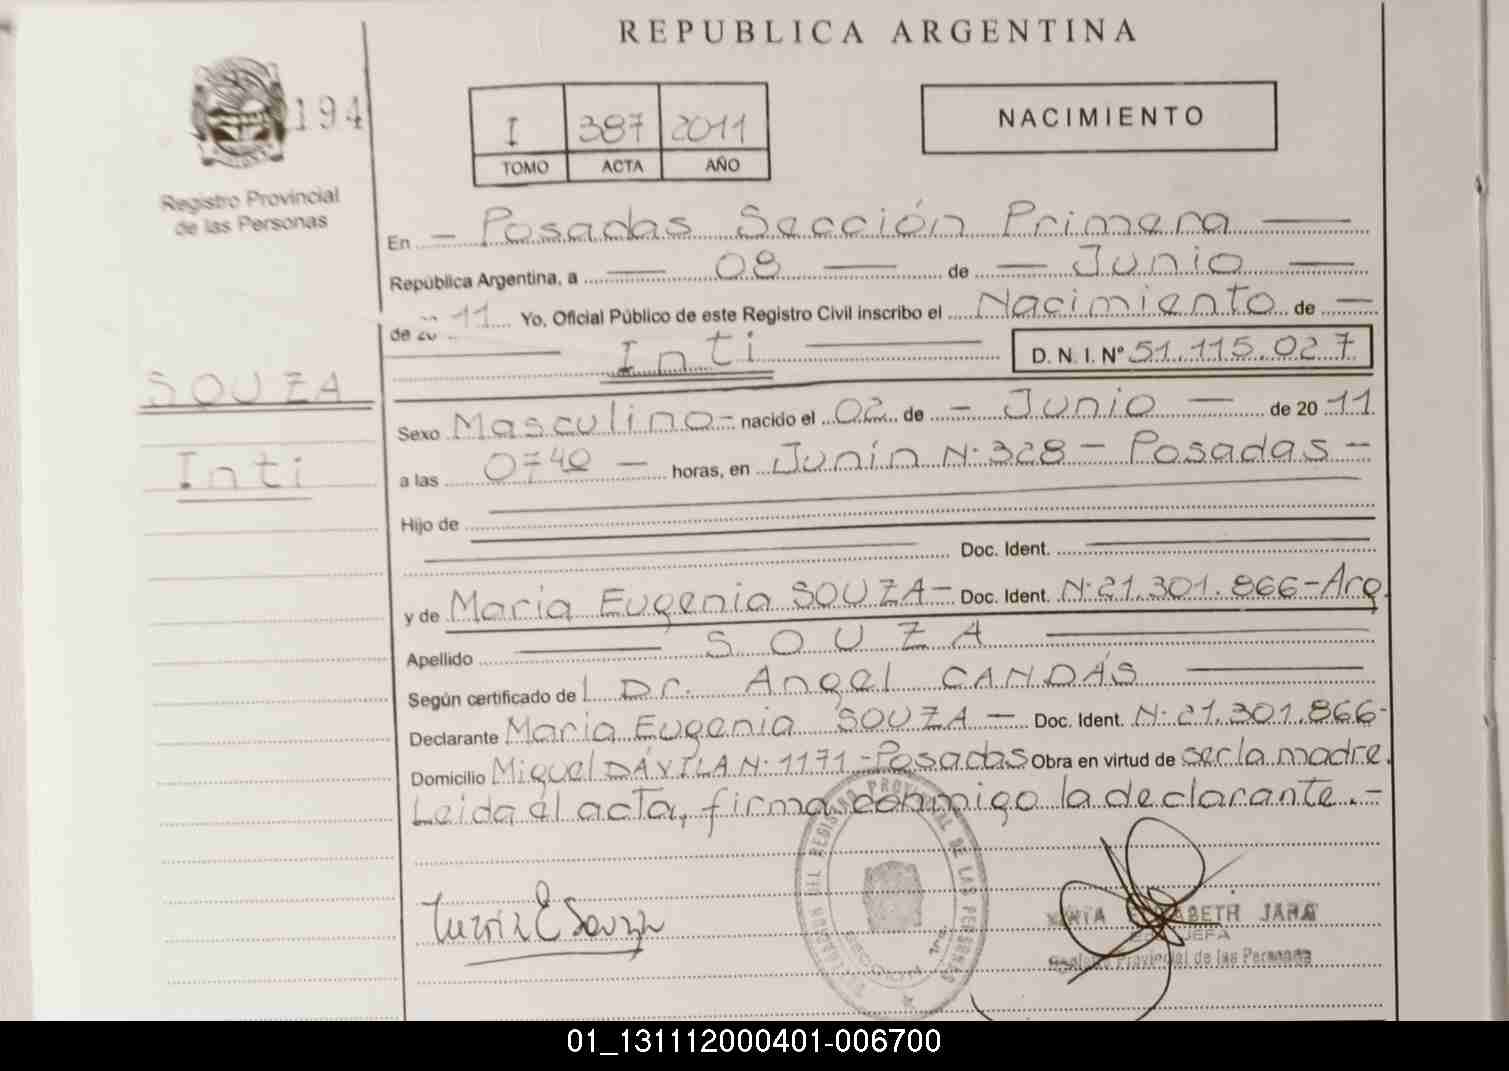 REPUBLICA ARGENTINA
194
I 387 2011
TOMO ACTA AÑO
NACIMIENTO
Registro Provincial
de las Personas
En - Posadas Sección Primera
República Argentina, a 08 de - Junio
de 20 11 Yo, Oficial Público de este Registro Civil inscribo el Nacimiento de
Inti D. N. I. Nº 51.115.027
SOUZA
Inti
Sexo Masculino- nacido el 02 de - Junio - de 20 11
a las 0740 - horas, en Junín N: 328 - Posadas -
Hijo de
Doc. Ident.
y de María Eugenia SOUZA- Doc. Ident. N: 21.301.866-Arg.
Apellido SOUZA
Según certificado de Dr. Angel CANDÁS
Declarante María Eugenia SOUZA - Doc. Ident. N: 21.301.866-
Domicilio Miguel DÁVILA N: 1171 -Posadas Obra en virtud de ser la madre.
Leída el acta, firma conmigo la declarante.-
E Souza
ELISABETH JARA
JEFA
Registro Provincial de las Personas
DEL REGISTRO PROVINCIAL DE LAS PERSONAS
SECCION 1ra.
01_131112000401-006700